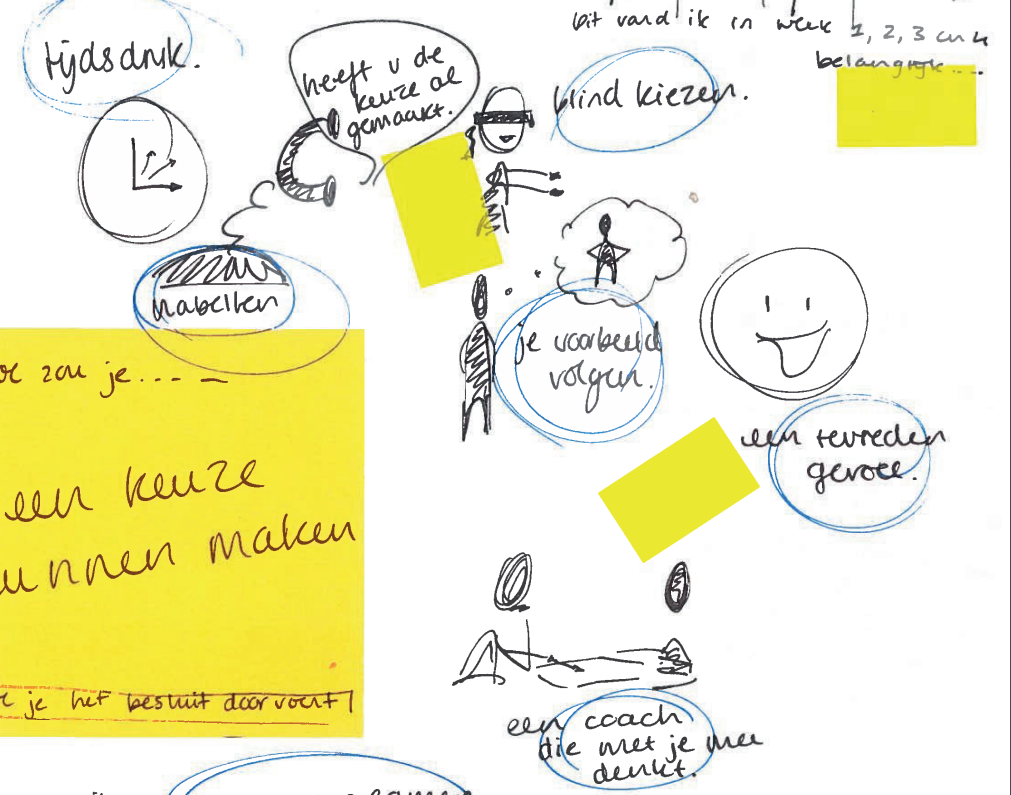 dit vond ik in week 1, 2, 3 en 4
belangrijk....
tijdsdruk.
heeft u de
keuze al
gemaakt.
blind kiezen.
nabellen
je voorbeeld
volgen.
zou je.... _
een keuze
kunnen maken
een tevreden
gevoel.
je het besluit doorvoert
een coach
die met je mee
denkt.